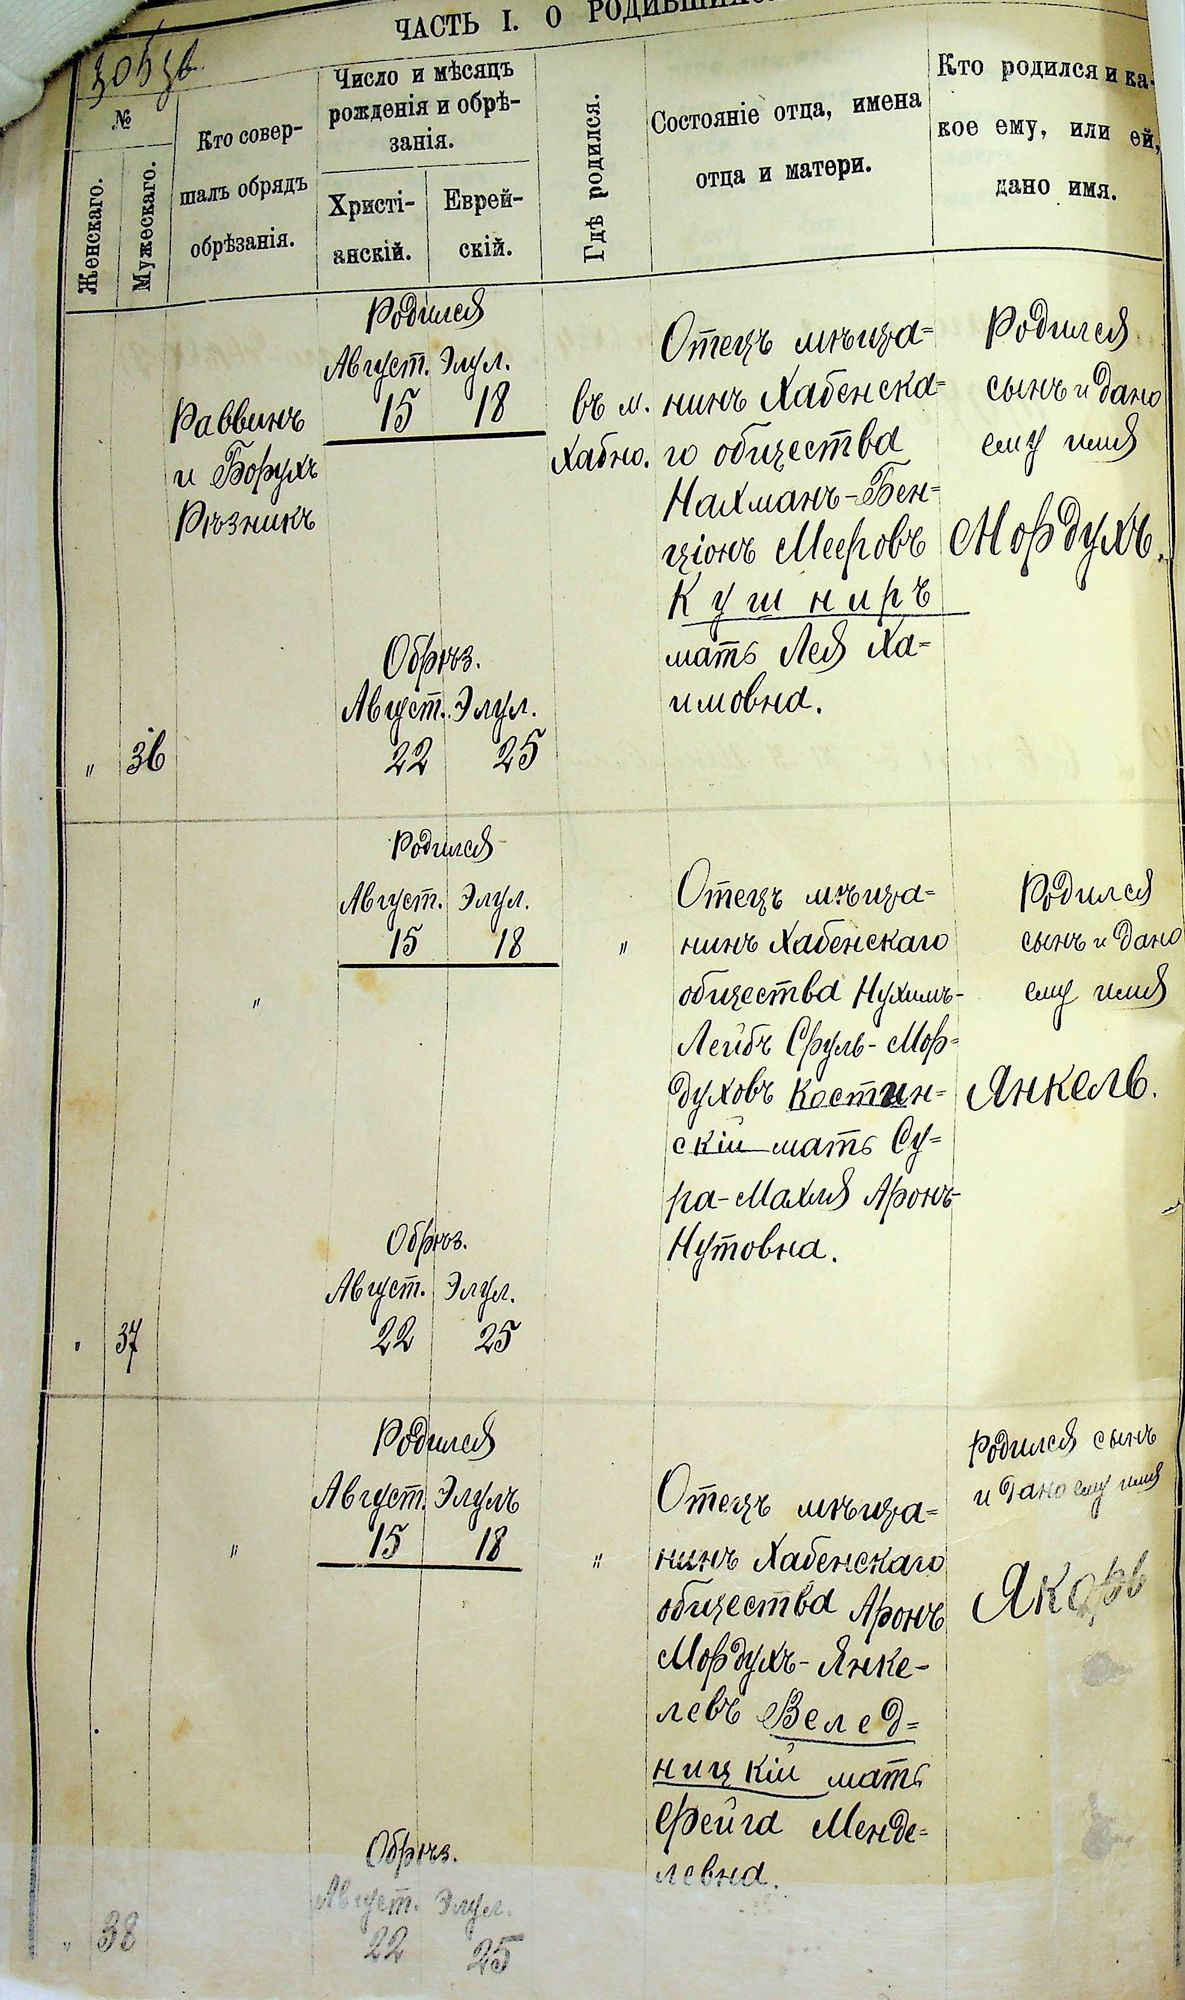 ЧАСТЬ I. О РОДИВШИХСЯ
№
Женскаго.
Мужескаго.
Кто совер-
шалъ обрядъ
обрѣзанія.
Число и мѣсяцъ
рожденія и обрѣ-
занія.
Христі-
анскій.
Еврей-
скій.
Гдѣ родился.
Состояніе отца, имена
отца и матери.
Кто родился и ка-
кое ему, или ей,
дано имя.
„ 36
Раввинъ
и Борухъ
Рѣзникъ
Родился
Август. Элул.
15 18
Обрѣз.
Август. Элул.
22 25
въ м.
Хабно.
Отецъ мѣща=
нинъ Хабенска=
го общества
Нахманъ-Бен=
ціонъ Мееровъ
Кушниръ
мать Лея Ха=
имовна.
Родился
сынъ и дано
ему имя
Мордухъ.
„ 37
„
Родился
Август. Элул.
15 18
Обрѣз.
Август. Элул.
22 25
„
Отецъ мѣща=
нинъ Хабенскаго
общества Нухимъ-
Лейбъ Сруль-Мор=
духовъ Костин=
скій мать Су=
ра-Махля Аронъ-
Нутовна.
Родился
сынъ и дано
ему имя
Янкель.
„ 38
„
Родился
Август. Элулъ
15 18
Обрѣз.
Август. Элул.
22 25
„
Отецъ мѣща=
нинъ Хабенскаго
общества Аронъ
Мордухъ-Янке-
левъ Велед=
ницкій мать
Фейга Менде=
левна.
Родился сынъ
и дано ему имя